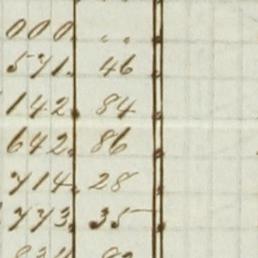 000. ..
571. 46
142. 84
642. 86
714. 28
773. 35